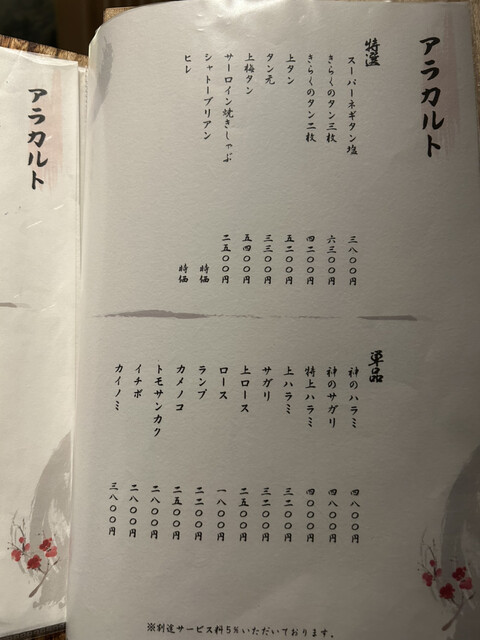 アラカルト
特選
スーパーネギタン塩 三八〇〇円
きらくのタン三枚 六三〇〇円
きらくのタン二枚 四二〇〇円
上タン 五二〇〇円
タン元 三三〇〇円
上梅タン 五四〇〇円
サーロイン焼きしゃぶ 二五〇〇円
シャトーブリアン 時価
ヒレ 時価
単品
神のハラミ 四八〇〇円
神のサガリ 四八〇〇円
特上ハラミ 四〇〇〇円
上ハラミ 三二〇〇円
サガリ 三二〇〇円
上ロース 二五〇〇円
ロース 一八〇〇円
ランプ 二二〇〇円
カメノコ 二五〇〇円
トモサンカク 二八〇〇円
イチボ 二八〇〇円
カイノミ 三八〇〇円
※別途サービス料5%いただいております。
アラカルト